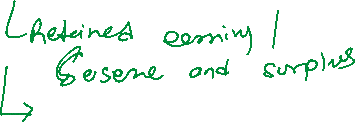 Retained earning /
Reserve and surplus